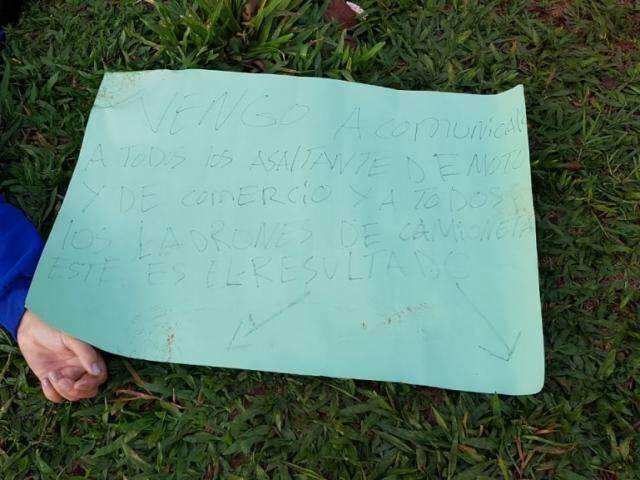 VENGO A COMUNICAR
A TODOS LOS ASALTANTE DE MOTO
Y DE COMERCIO Y A TODOS
LOS LADRONES DE CAMIONETA
ESTE ES EL RESULTADO